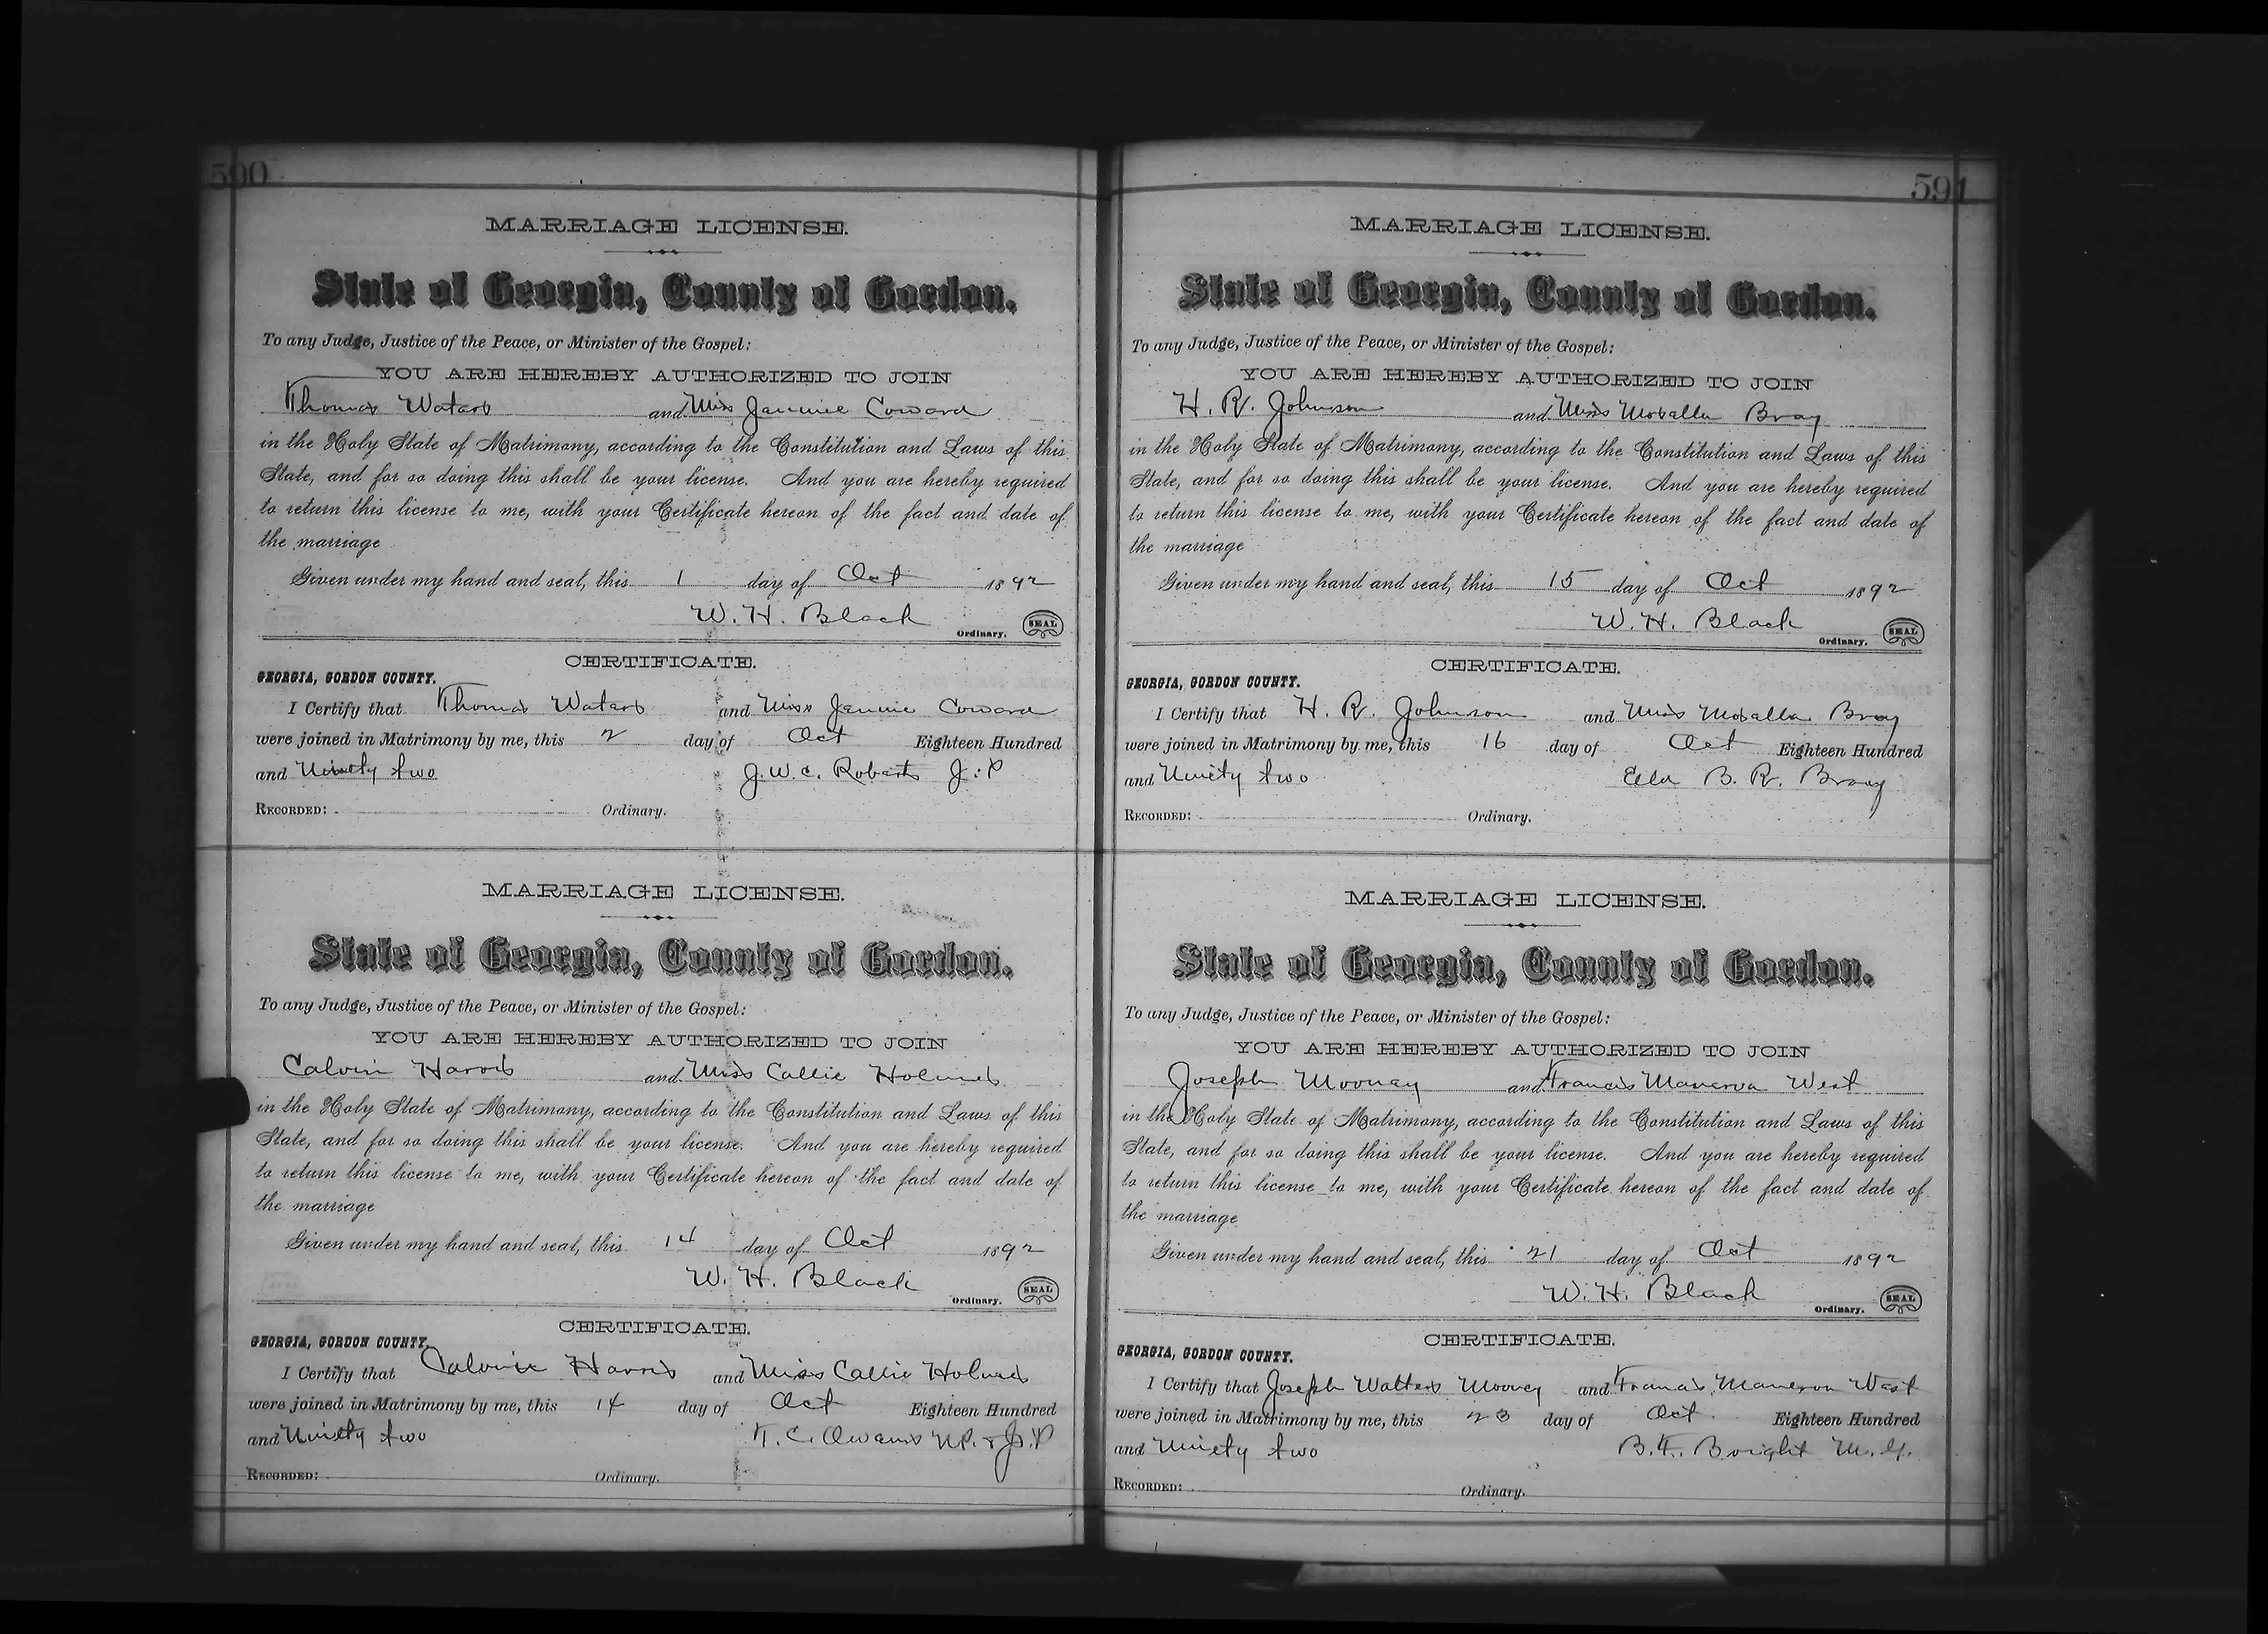 590
MARRIAGE LICENSE.
State of Georgia, County of Gordon.
To any Judge, Justice of the Peace, or Minister of the Gospel:
YOU ARE HEREBY AUTHORIZED TO JOIN
Thomas Waters and Miss Jannie Coward
in the Holy State of Matrimony, according to the Constitution and Laws of this
State, and for so doing this shall be your license. And you are hereby required
to return this license to me, with your Certificate hereon of the fact and date of
the marriage
Given under my hand and seal, this 1 day of Oct 1892
W. H. Black
Ordinary. SEAL
CERTIFICATE.
GEORGIA, GORDON COUNTY.
I Certify that Thomas Waters and Miss Jannie Coward
were joined in Matrimony by me, this 2 day of Oct Eighteen Hundred
and Ninety two J. W. C. Roberts J. P
RECORDED: Ordinary.
MARRIAGE LICENSE.
State of Georgia, County of Gordon.
To any Judge, Justice of the Peace, or Minister of the Gospel:
YOU ARE HEREBY AUTHORIZED TO JOIN
Calvin Harris and Miss Callie Holmes
in the Holy State of Matrimony, according to the Constitution and Laws of this
State, and for so doing this shall be your license. And you are hereby required
to return this license to me, with your Certificate hereon of the fact and date of
the marriage
Given under my hand and seal, this 14 day of Oct 1892
W. H. Black
Ordinary. SEAL
CERTIFICATE.
GEORGIA, GORDON COUNTY.
I Certify that Calvin Harris and Miss Callie Holmes
were joined in Matrimony by me, this 14 day of Oct Eighteen Hundred
and Ninety two T. C. Owens N.P. & J. P
RECORDED: Ordinary.
591
MARRIAGE LICENSE.
State of Georgia, County of Gordon.
To any Judge, Justice of the Peace, or Minister of the Gospel:
YOU ARE HEREBY AUTHORIZED TO JOIN
H. R. Johnson and Miss Mosalla Bray
in the Holy State of Matrimony, according to the Constitution and Laws of this
State, and for so doing this shall be your license. And you are hereby required
to return this license to me, with your Certificate hereon of the fact and date of
the marriage
Given under my hand and seal, this 15 day of Oct 1892
W. H. Black
Ordinary. SEAL
CERTIFICATE.
GEORGIA, GORDON COUNTY.
I Certify that H. R. Johnson and Miss Mosalla Bray
were joined in Matrimony by me, this 16 day of Oct Eighteen Hundred
and Ninety two B. R. Bray
RECORDED: Ordinary.
MARRIAGE LICENSE.
State of Georgia, County of Gordon.
To any Judge, Justice of the Peace, or Minister of the Gospel:
YOU ARE HEREBY AUTHORIZED TO JOIN
Joseph Mooney and Francis Manerva West
in the Holy State of Matrimony, according to the Constitution and Laws of this
State, and for so doing this shall be your license. And you are hereby required
to return this license to me, with your Certificate hereon of the fact and date of
the marriage
Given under my hand and seal, this 21 day of Oct 1892
W. H. Black
Ordinary. SEAL
CERTIFICATE.
GEORGIA, GORDON COUNTY.
I Certify that Joseph Walters Mooney and Francis Manerva West
were joined in Matrimony by me, this 23 day of Oct Eighteen Hundred
and Ninety two B. F. Bright M. G.
RECORDED: Ordinary.